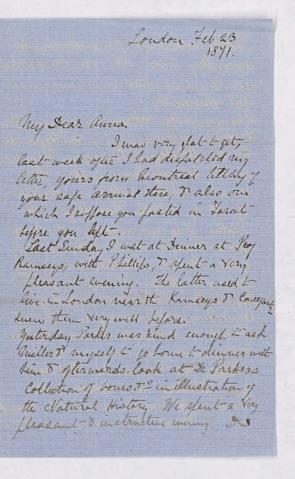 London Feb 23
1871.
My Dear Anna
I was very glad to get,
last week after I had dispatched my
letter, yours from Montreal telling of
your safe arrival there, & also one
which I suppose you posted in
before you left.
Last Sunday I was at Dinner at Prof
Ramseys with Phillips, & spent a very
pleasant evening. The latter used to
live in London near the Ramseys & Consequently
knew them very well before.
Yesterday Parker was kind enough to ask
& myself to go home to dinner with
him & afterwards look at Dr Parkers
Collection of bones &c in illustration of
the Natural History. We spent a very
pleasant & instructive evening.